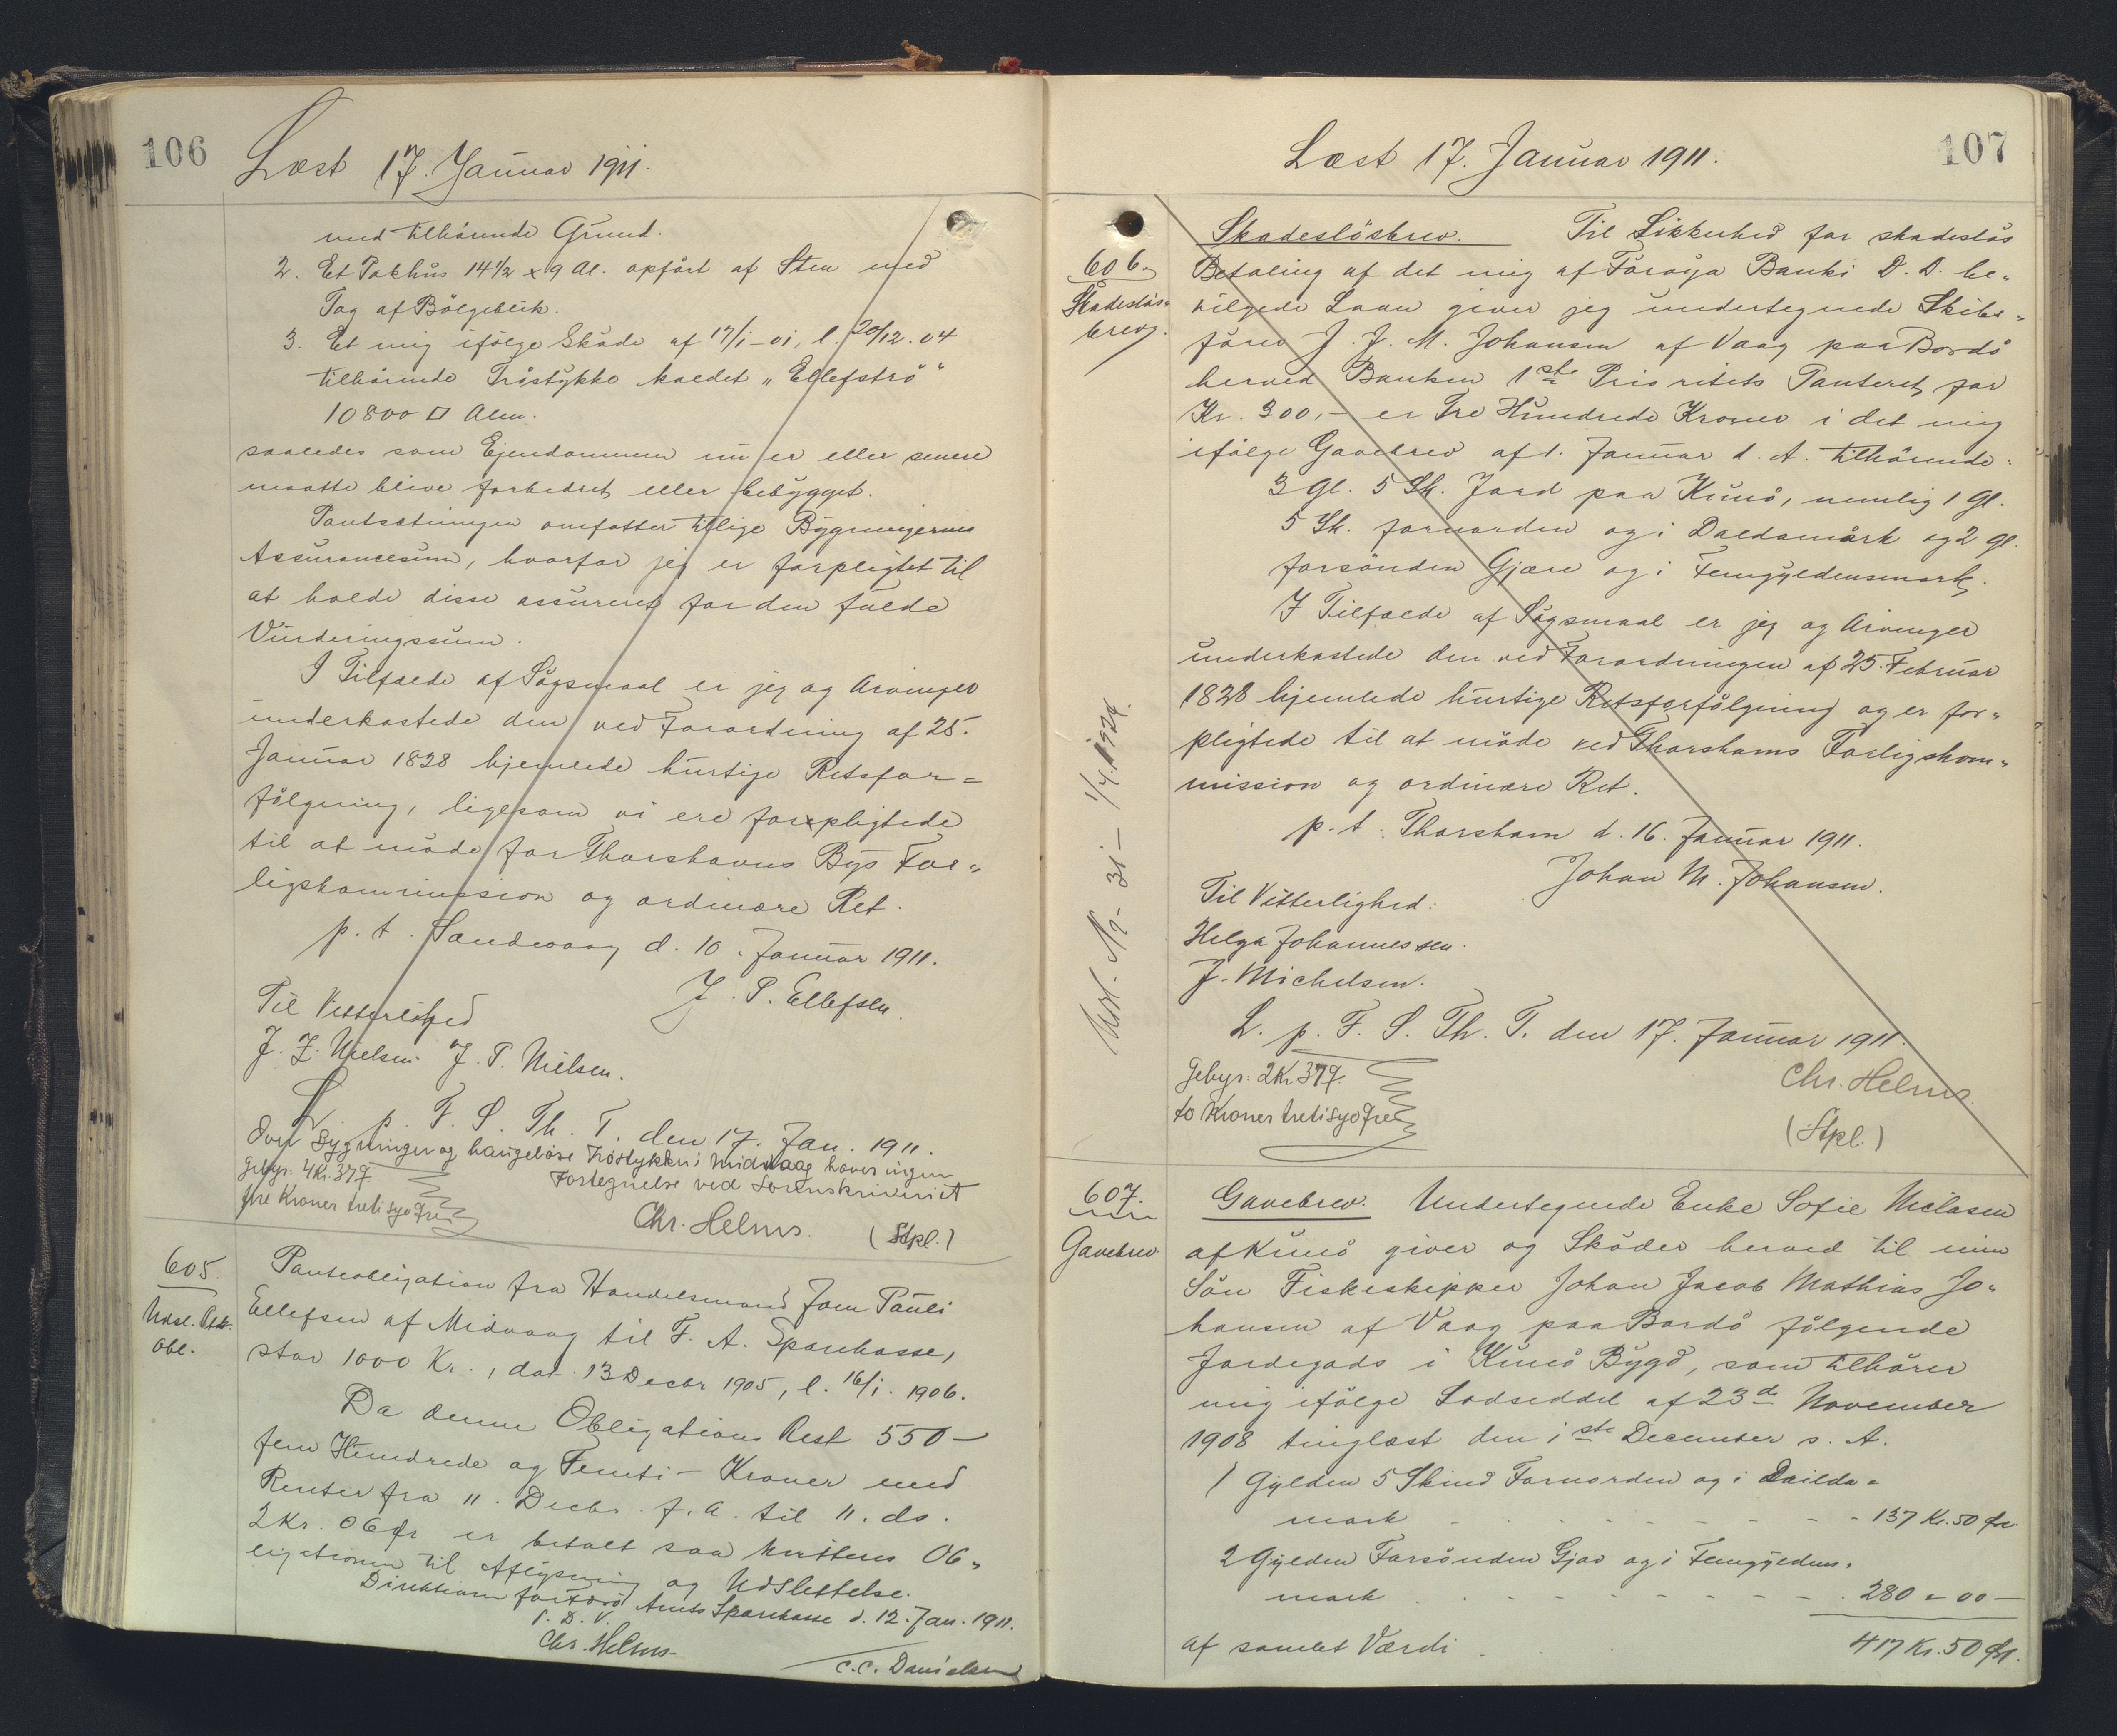 106
Læst 17. Januar 1911.
med tilhørende Grund.
2. Et Pakhus 14½ x 9 Al. opført af Sten med
Tag af Bölgeblik.
3. Et mig ifølge Skøde af 17/1-01, l. 20/12.04
tilhørende Tröstykke kaldet "Ellefströ"
10800 □ Alen.
saaledes som Ejendommen nu er eller senere
maatte blive forbedret eller bebygget.
Pantsætningen omfatter tillige Bygningernes
Assurancesum, hvorfor jeg er forpligtet til
at holde disse assureret for den fulde
Vurderingssum.
I Tilfælde af Søgsmaal er jeg og Arvinger
underkastede den ved Forordning af 25.
Januar 1828 hjemlede hurtige Retsfor=
følgning, ligesom vi ere forpligtede
til at møde for Thorshavns Bys For„
ligskommission og ordinære Ret.
p. t. Sandvaag d. 10. Januar 1911.
J. P. Ellefsen.
Til Vitterlighed
J. Z. Nielsen. J. P. Nielsen.
L. p. F. S. Th. T. den 17. Jan. 1911.
Over Bygninger og haugeløse Tröstykker i Midvaag haves ingen
Fortegnelse ved Sorenskriveriet
Gebyr: 4 Kr. 37 Ø.
fire Kroner treti syv Øre
Chr. Helms. (Stpl.)
605.
Udsl. Pt.
Obl.
Panteobligation fra Handelsmand Joen Pauli
Ellefsen af Midvaag til F. A. Sparekasse,
stor 1000 Kr., dat. 13 Decbr 1905, l. 16/1. 1906.
Da denne Obligations Rest 550 —
fem Hundrede og Femti — Kroner med
Renter fra 11. Decbr. f. A. til 11. ds.
2 Kr. 06 Ør er betalt saa kvitteres Ob„
ligationen til Aflysning og Udslettelse.
Direktionen for Færø Amts Sparekasse d. 12. Jan. 1911.
P. D. V.
Chr. Helms.
C. C. Danielsen
107
Læst 17. Januar 1911.
606.
Skadesløs=
brev.
Udsl. No. 31 – 1/4 1924.
Skadesløsbrev. Til Sikkerhed for skadesløs
Betaling af det mig af Föroya Banki D. D. be„
vilgede Laan giver jeg undertegnede Skibs„
fører J. J. M. Johansen af Vaag paa Bordø
herved Banken 1ste Prioritets Panteret for
Kr. 300,- er Tre Hundrede Kroner i det mig
ifølge Gavebrev af 1. Januar d. A. tilhørende:
3 Gl. 5 Sk. Jord paa Kunø, nemlig 1 Gl.
5 Sk. fornorden og i Daldamark og 2 Gl.
forsønden Gjæv og i Femgyldensmark.
I Tilfælde af Søgsmaal er jeg og Arvinger
underkastede den ved Forordningen af 25. Februar
1828 hjemlede hurtige Retsforfølgning og er for„
pligtede til at møde ved Thorshavns Forligskom„
mission og ordinære Ret.
p. t. Thorshavn d. 16. Januar 1911.
Johan M. Johansen.
Til Vitterlighed:
Helga Johannessen.
J. Michelsen.
L. p. F. S. Th. T. den 17. Januar 1911.
Gebyr: 2 Kr. 37 Ø.
to Kroner treti syv Øre
Chr. Helms.
(Stpl.)
607.
Gavebrev
Gavebrev. Undertegnede Enke Sofie Nielsen
af Kunø giver og Skøder herved til min
Søn Fiskeskipper Johan Jacob Mathias Jo„
hansen af Vaag paa Bordø følgende
Jordegods i Kunø Bygd, som tilhører
mig ifølge Lodseddel af 23de November
1908 tinglæst den 1ste December s. A.
1 Gylden 5 Skind Fornorden og i Dailda=
mark - - - 137 Kr. 50 Øre.
2 Gylden Forsønden Gjov og i Femgyldens„
mark - - - 280 „ 00 —
af samlet Værdi . 417 Kr. 50 Ør.